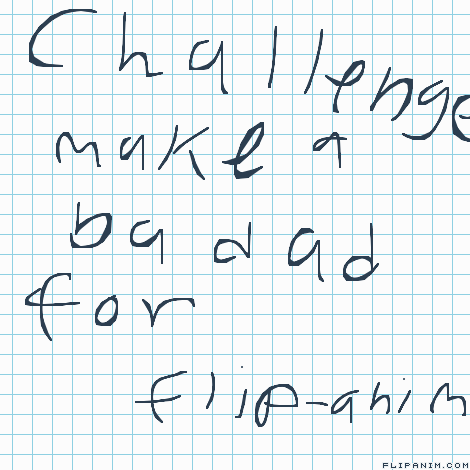 Challenge
make a
ba d ad
for
flip-anim
FLIPANIM.COM